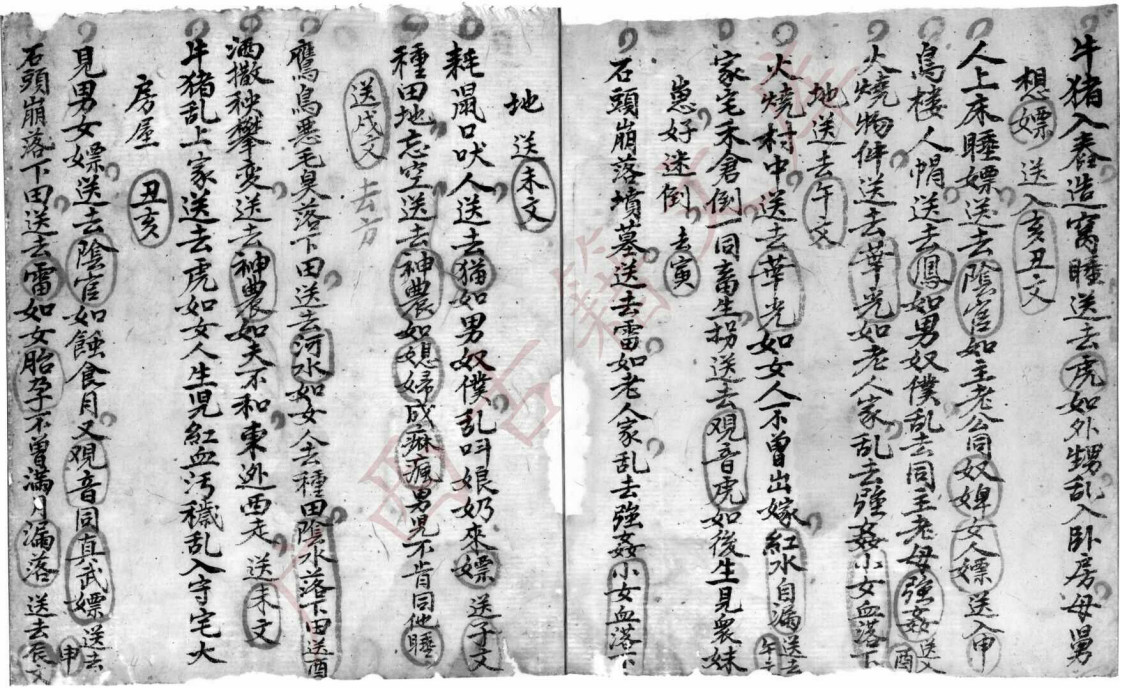 牛猪入舂造窩睡送去虎如外甥乱入卧房母舅
想嫖送入亥丑文
人上床睡嫖送去陰官如主老公同奴婢女人嫖送入申
鳥棲人帽送去鳳如男奴僕乱去同主老母強姦送文酉
火燒物件送去華光如老人家乱去強姦小女血落下
地送去午文
火燒村中送去華光如女人不曾出嫁紅水自漏送去午
家宅禾倉倒一同畜生拐送去观音虎如後生見衆妹
崽好迷倒去寅
石頭崩落墳墓送去雷如老人家乱去強姦小女血落下
地送未文
耗混口吠人送去猫如男奴僕乱叫娘奶來嫖送子文
種田地忘空送去神農如媳婦成痳瘋男児不肯同他睡
送戌文去方
鷹鳥悪毛臭落下田送去河水如女人去種田陰水落下田送酉
洒撒秧攀变送去神農如夫不和東逃西走送未文
牛猪乱上家送去虎如女人生児紅血污穢乱入守宅大
房屋丑亥
見男女嫖送去陰官如蝕食月又观音同真武嫖送去申
石頭崩落下田送去雷如女胎孕不曾满月漏落送去辰文